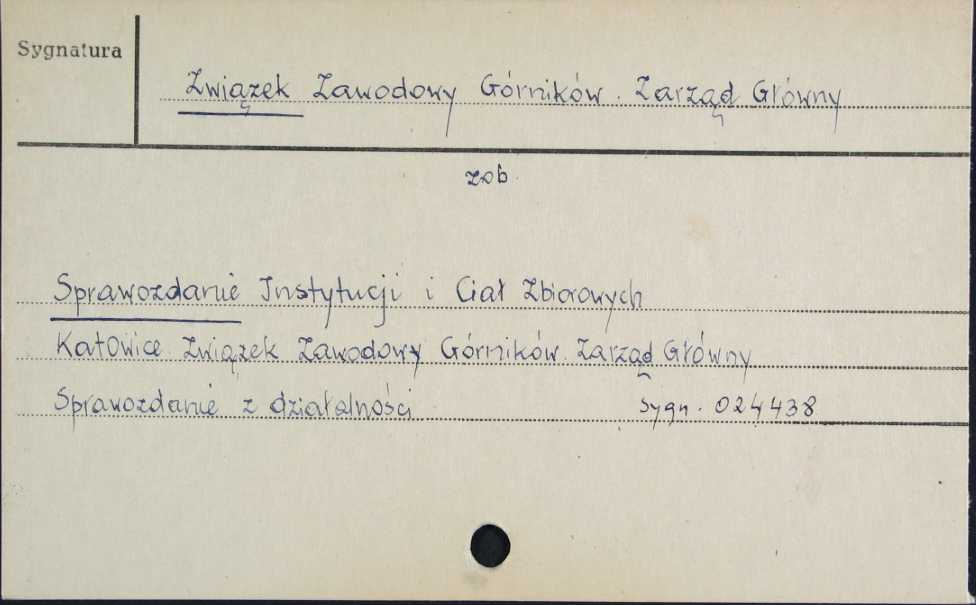 Sygnatura
Związek Zawodowy Górników. Zarząd Główny
zob.
Sprawozdanie Instytucji i Ciał Zbiorowych
Katowice. Związek Zawodowy Górników. Zarząd Główny
Sprawozdanie z działalności sygn. 024438